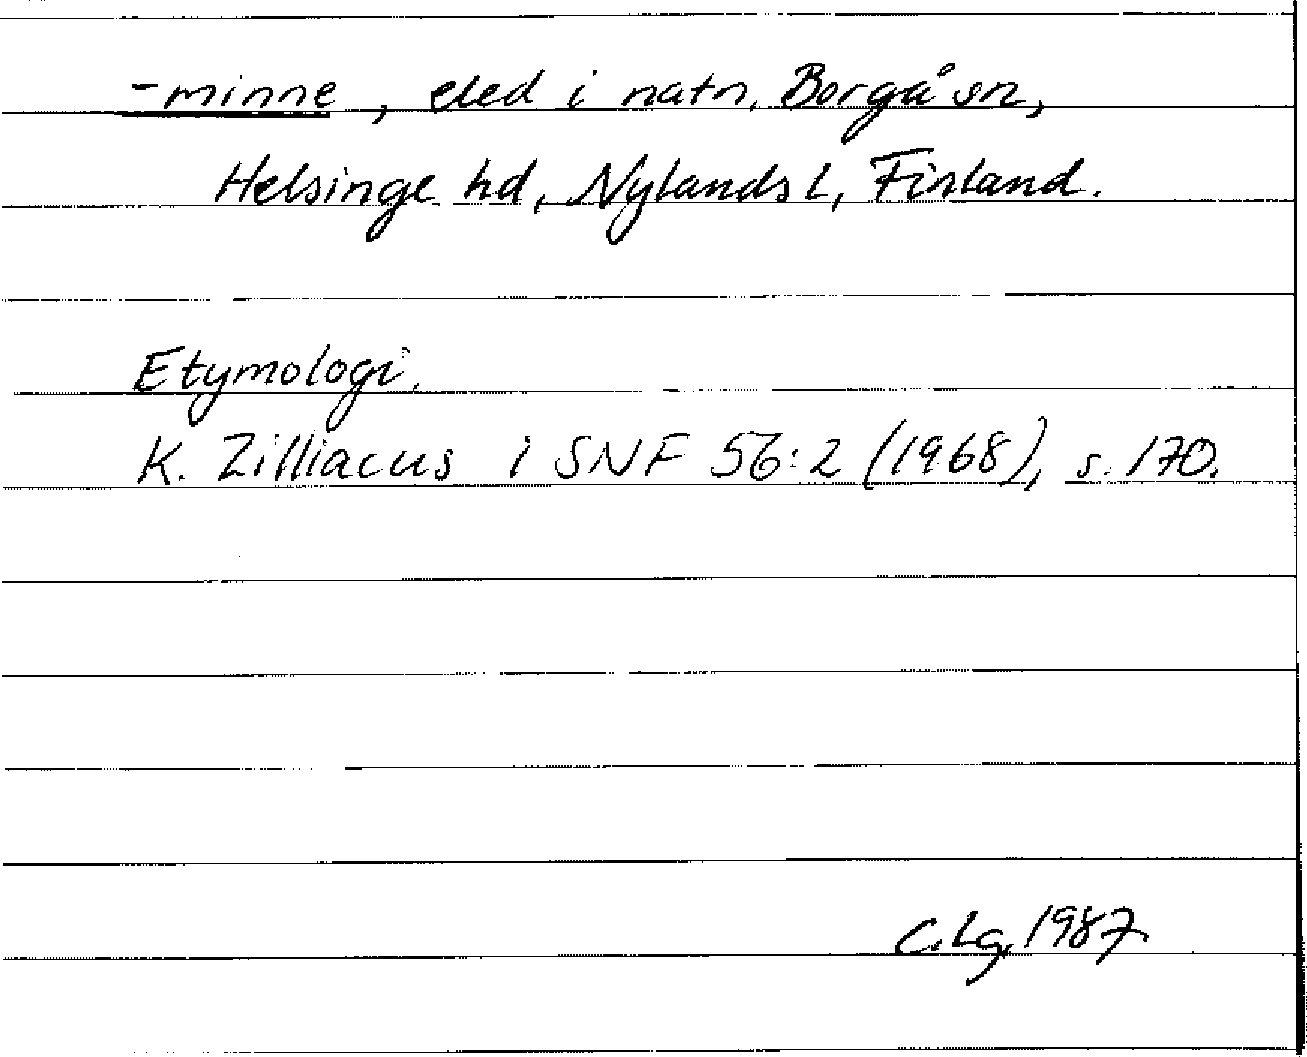 -minne, eled i natn, Borgå sn,
Helsinge hd, Nylands l, Finland.
Etymologi.
K. Zilliacus i SNF 56:2 (1968), s. 170.
C.Lg, 1987